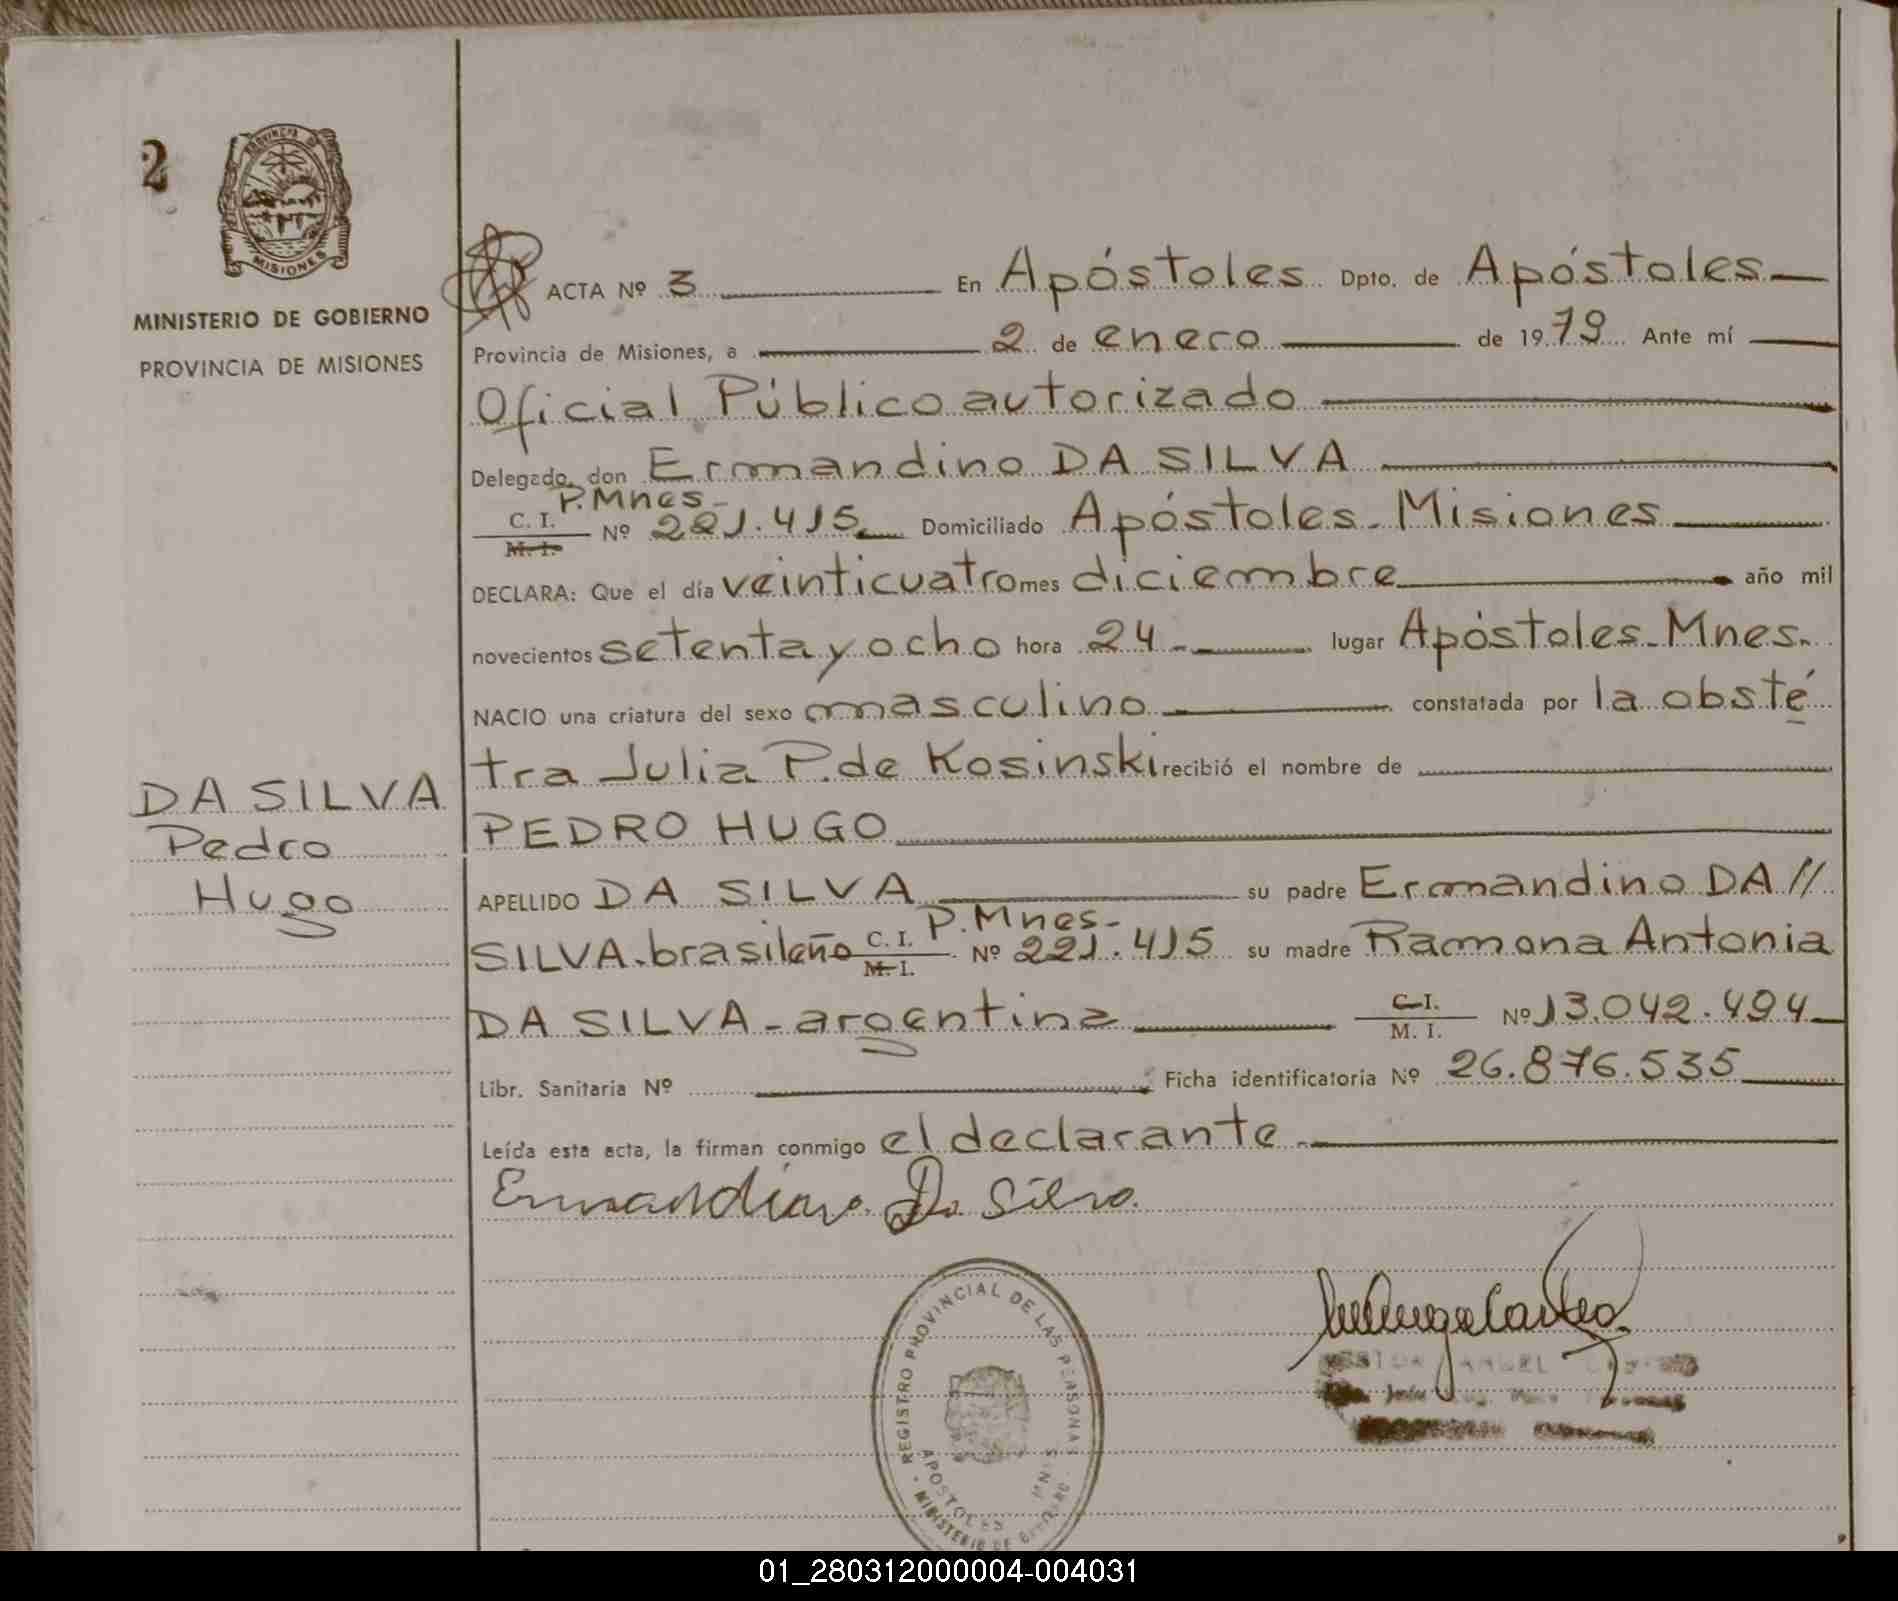 2
PROVINCIA DE
MISIONES
MINISTERIO DE GOBIERNO
PROVINCIA DE MISIONES
DA SILVA
Pedro
Hugo
ACTA Nº 3 En Apóstoles Dpto. de Apóstoles
Provincia de Misiones, a 2 de enero de 1979 Ante mí
Oficial Público autorizado
Delegado, don Ermandino DA SILVA
P. Mnes-
C. I. M. I. Nº 221.415 Domiciliado Apóstoles - Misiones
DECLARA: Que el día veinticuatro mes diciembre año mil
novecientos setenta y ocho hora 24 - lugar Apóstoles - Mnes.
NACIO una criatura del sexo masculino constatada por la obsté
tra Julia P. de Kosinski recibió el nombre de
PEDRO HUGO
APELLIDO DA SILVA su padre Ermandino DA //
P. Mnes-
SILVA - brasileño C. I. M. I. Nº 221.415 su madre Ramona Antonia
DA SILVA - argentina C. I. M. I. Nº 13.042.494
Libr. Sanitaria Nº Ficha identificatoria Nº 26.876.535
Leída esta acta, la firman conmigo el declarante
Ermandino Da Silva
REGISTRO PROVINCIAL DE LAS PERSONAS
APOSTOLES MNES
MINISTERIO DE GOBIERNO
ANGEL
01_280312000004-004031